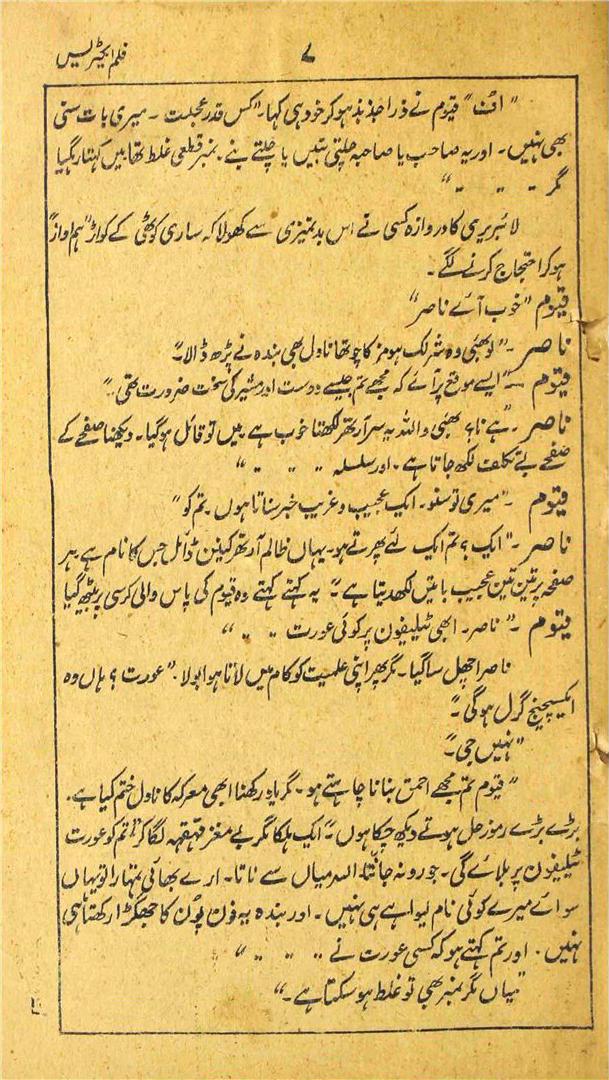 فلم ایکٹریس
۷
"اُف" قیوم نے ذرا جذبذ ہو کر خود ہی کہا۔ "کس قدر عجلت ۔ میری بات سنی
بھی نہیں۔ اور یہ صاحب یا صاحبہ چلتی بنیں یا چلتے بنے۔ نمبر قطعی غلط تھا میں کہتا رہ گیا
مگر ۔ ۔ ۔ ۔"
لائبریری کا دروازہ کسی نے اس بدتمیزی سے کھولا کہ ساری کوٹھی کے کواڑ "ہم آواز"
ہو کر احتجاج کرنے لگے۔
قیوم "خوب آئے ناصر"
ناصر ۔ "لو بھئی وہ شرلک ہومز کا چوتھا ناول بھی بندہ نے پڑھ ڈالا۔"
قیوم ۔ "ایسے موقع پر آئے کہ مجھے تم جیسے دوست اور مشیر کی سخت ضرورت تھی۔"
ناصر ۔ "ہے نا؟ بھئی واللہ یہ سر آرتھر لکھتا خوب ہے۔ میں تو قائل ہو گیا۔ دیکھنا صفحے کے
صفحے بے تکلف لکھ جاتا ہے۔ اور سلسلہ ۔ ۔ ۔ ۔"
قیوم ۔ "میری تو سنو۔ ایک عجیب و غریب خبر سناتا ہوں۔ تم کو"
ناصر ۔ "ایک؟ تم ایک لئے پھرتے ہو۔ یہاں ظالم آرتھر کینن ڈائل جس کا نام ہے۔ ہر
صفحہ پر تین تین عجیب باتیں لکھ دیتا ہے۔" یہ کہتے کہتے وہ قیوم کی پاس والی کرسی پر بیٹھ گیا
قیوم ۔ "ناصر۔ ابھی ٹیلیفون پر کوئی عورت ۔ ۔ ۔"
ناصر اچھل سا گیا۔ مگر پھر اپنی علمیت کو کام میں لاتا ہوا بولا۔ "عورت؟ ہاں وہ
ایکسچینج گرل ہوگی۔"
"نہیں جی۔"
"قیوم تم مجھے احمق بنانا چاہتے ہو۔ مگر یاد رکھنا ابھی معرکہ کا ناول ختم کیا ہے۔
بڑے بڑے رموز حل ہوتے دیکھ چکا ہوں۔" ایک ہلکا مگر بے مغز قہقہہ لگا کر "تم کو عورت
ٹیلیفون پر بلائے گی۔ جورو نہ جاتا اللہ میاں سے ناتا۔ ارے بھائی تمہارا تو یہاں
سوائے میرے کوئی نام لیوا ہے ہی نہیں۔ اور بندہ یہ فون پون کا جھگڑا رکھتا ہی
نہیں۔ اور تم کہتے ہو کہ کسی عورت نے ۔ ۔ ۔ ۔"
"میاں مگر نمبر بھی تو غلط ہو سکتا ہے۔"